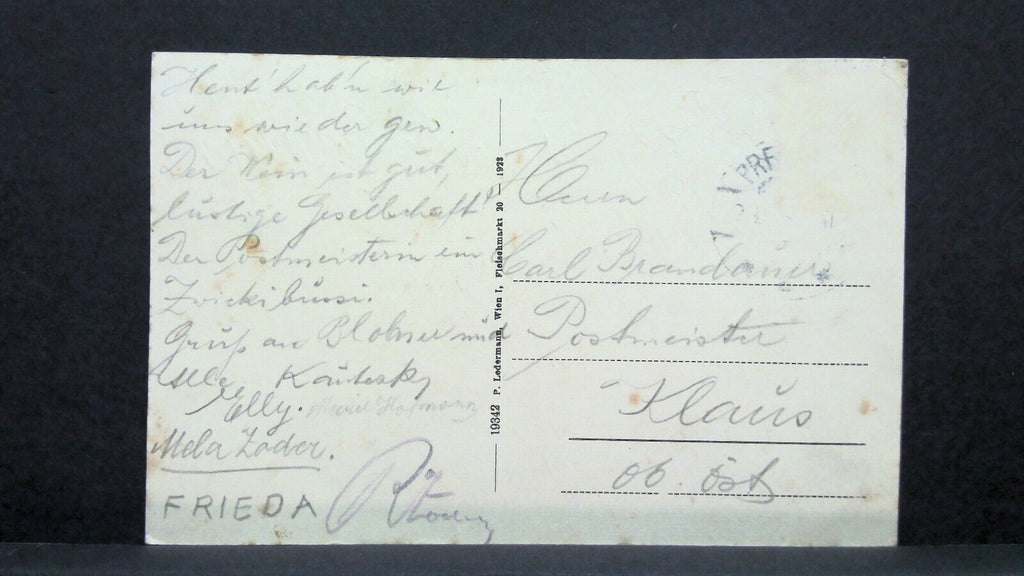 Heut' hab'n wir
uns wieder gern.
Der Wein ist gut,
lustige Gesellschaft!
Der Postmeisterin ein
Zwickibussi.
Gruß an Blohner und
Alle Kautsky
Elly. Hofmann
Mela Zoder.
FRIEDA
19342 P. Ledermann, Wien I, Fleischmarkt 20 — 1928
PRF
Herrn
Carl Brandauer
Postmeister
Klaus
ob. Öst